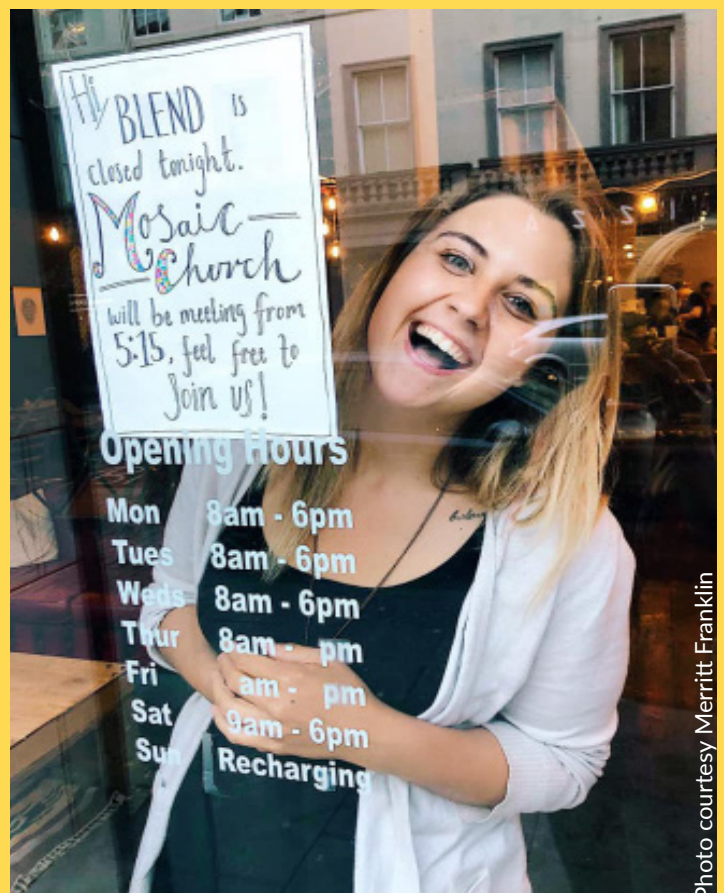 Hi,
BLEND is
closed tonight.
Mosaic
Church
will be meeting from
5:15, feel free to
Join us!
Opening Hours
Mon 8am - 6pm
Tues 8am - 6pm
Weds 8am - 6pm
Thur 8am - pm
Fri am - pm
Sat 9am - 6pm
Sun Recharging
Photo courtesy Merritt Franklin